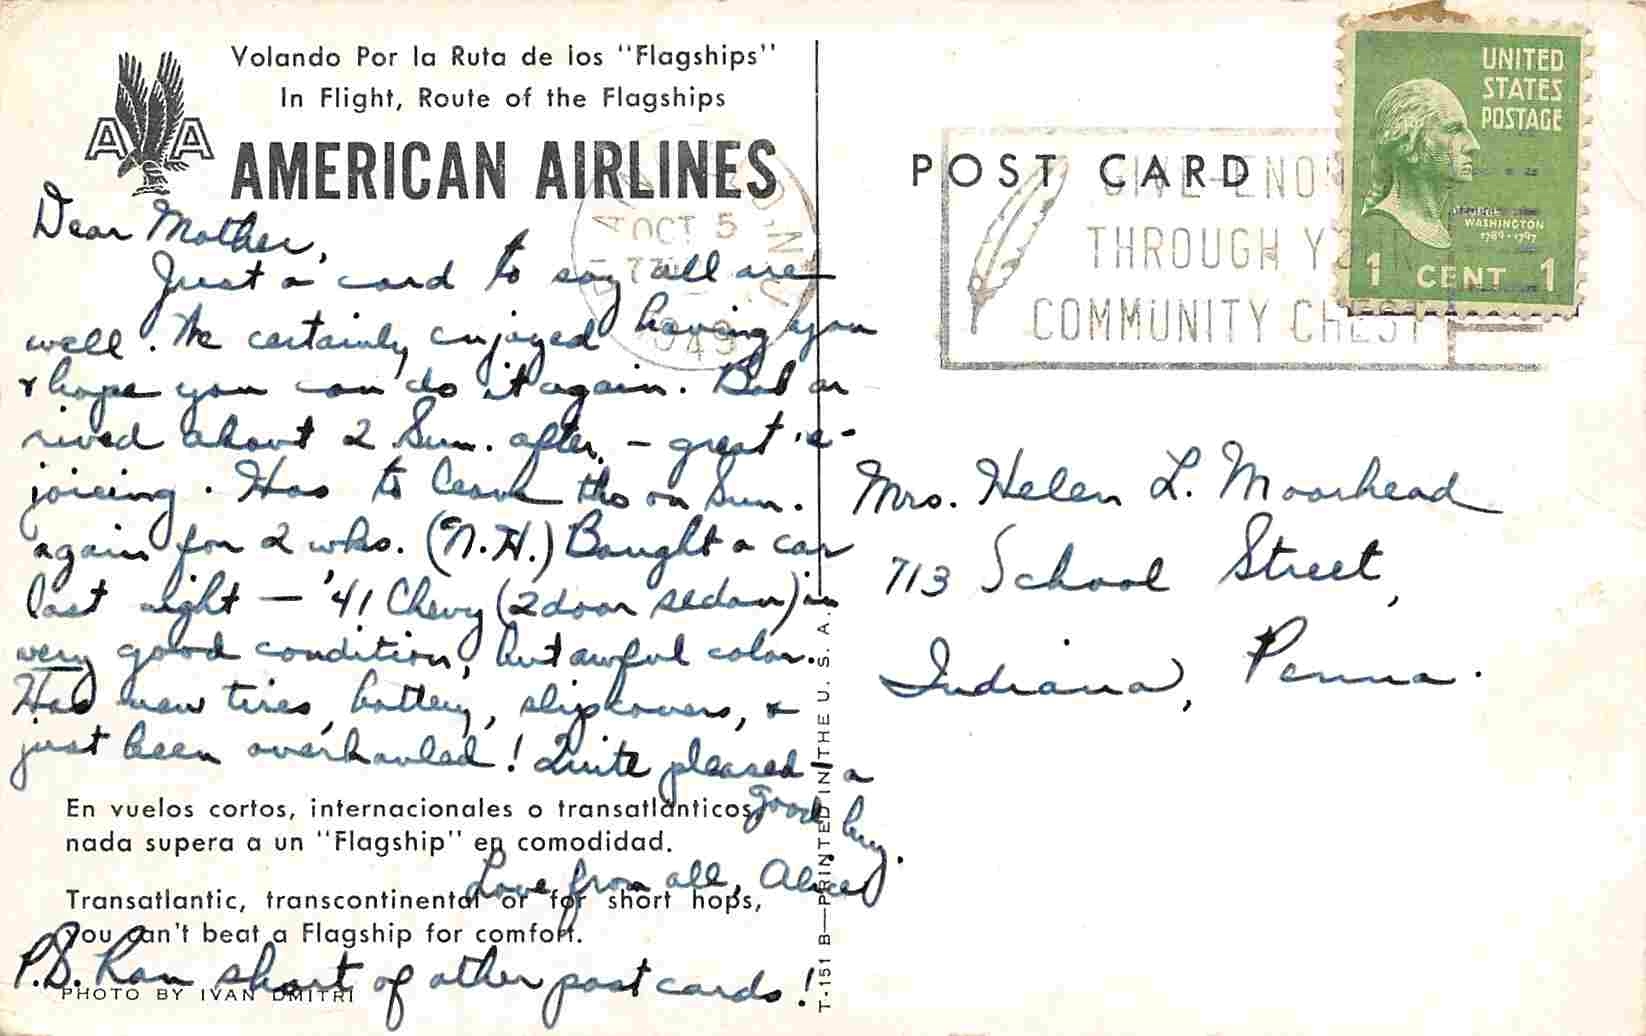 Volando Por la Ruta de los "Flagships"
In Flight, Route of the Flagships
A A
AMERICAN AIRLINES
Dear Mother,
Just a card to say all are
well. We certainly enjoyed having you
& hope you can do it again. Bob ar
rived about 2 Sun. after. – great re-
joicing. Has to leave tho on Sun.
again for 2 wks. (N.H.) Bought a car
last night – '41 Chevy (2 door sedan) in
very good condition, but awful color.
Had new tires, battery, slipcovers, &
just been overhauled! Quite pleased – a
good buy.
En vuelos cortos, internacionales o transatlánticos,
nada supera a un "Flagship" en comodidad.
Love from all, Alice
Transatlantic, transcontinental or for short hops,
you can't beat a Flagship for comfort.
P.S. Ran short of other post cards!
PHOTO BY IVAN DMITRI
T-151 B—PRINTED IN THE U. S. A.
OCT 5
1949
POST CARD
GIVE-ENOUGH
THROUGH YOUR
COMMUNITY CHEST
UNITED
STATES
POSTAGE
WASHINGTON
1789-1797
1 CENT 1
Mrs. Helen L. Moorhead
713 School Street,
Indiana, Penna.